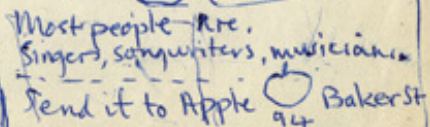 Most people are.
Singers, songwriters, musicians.
Send it to Apple Baker St
94